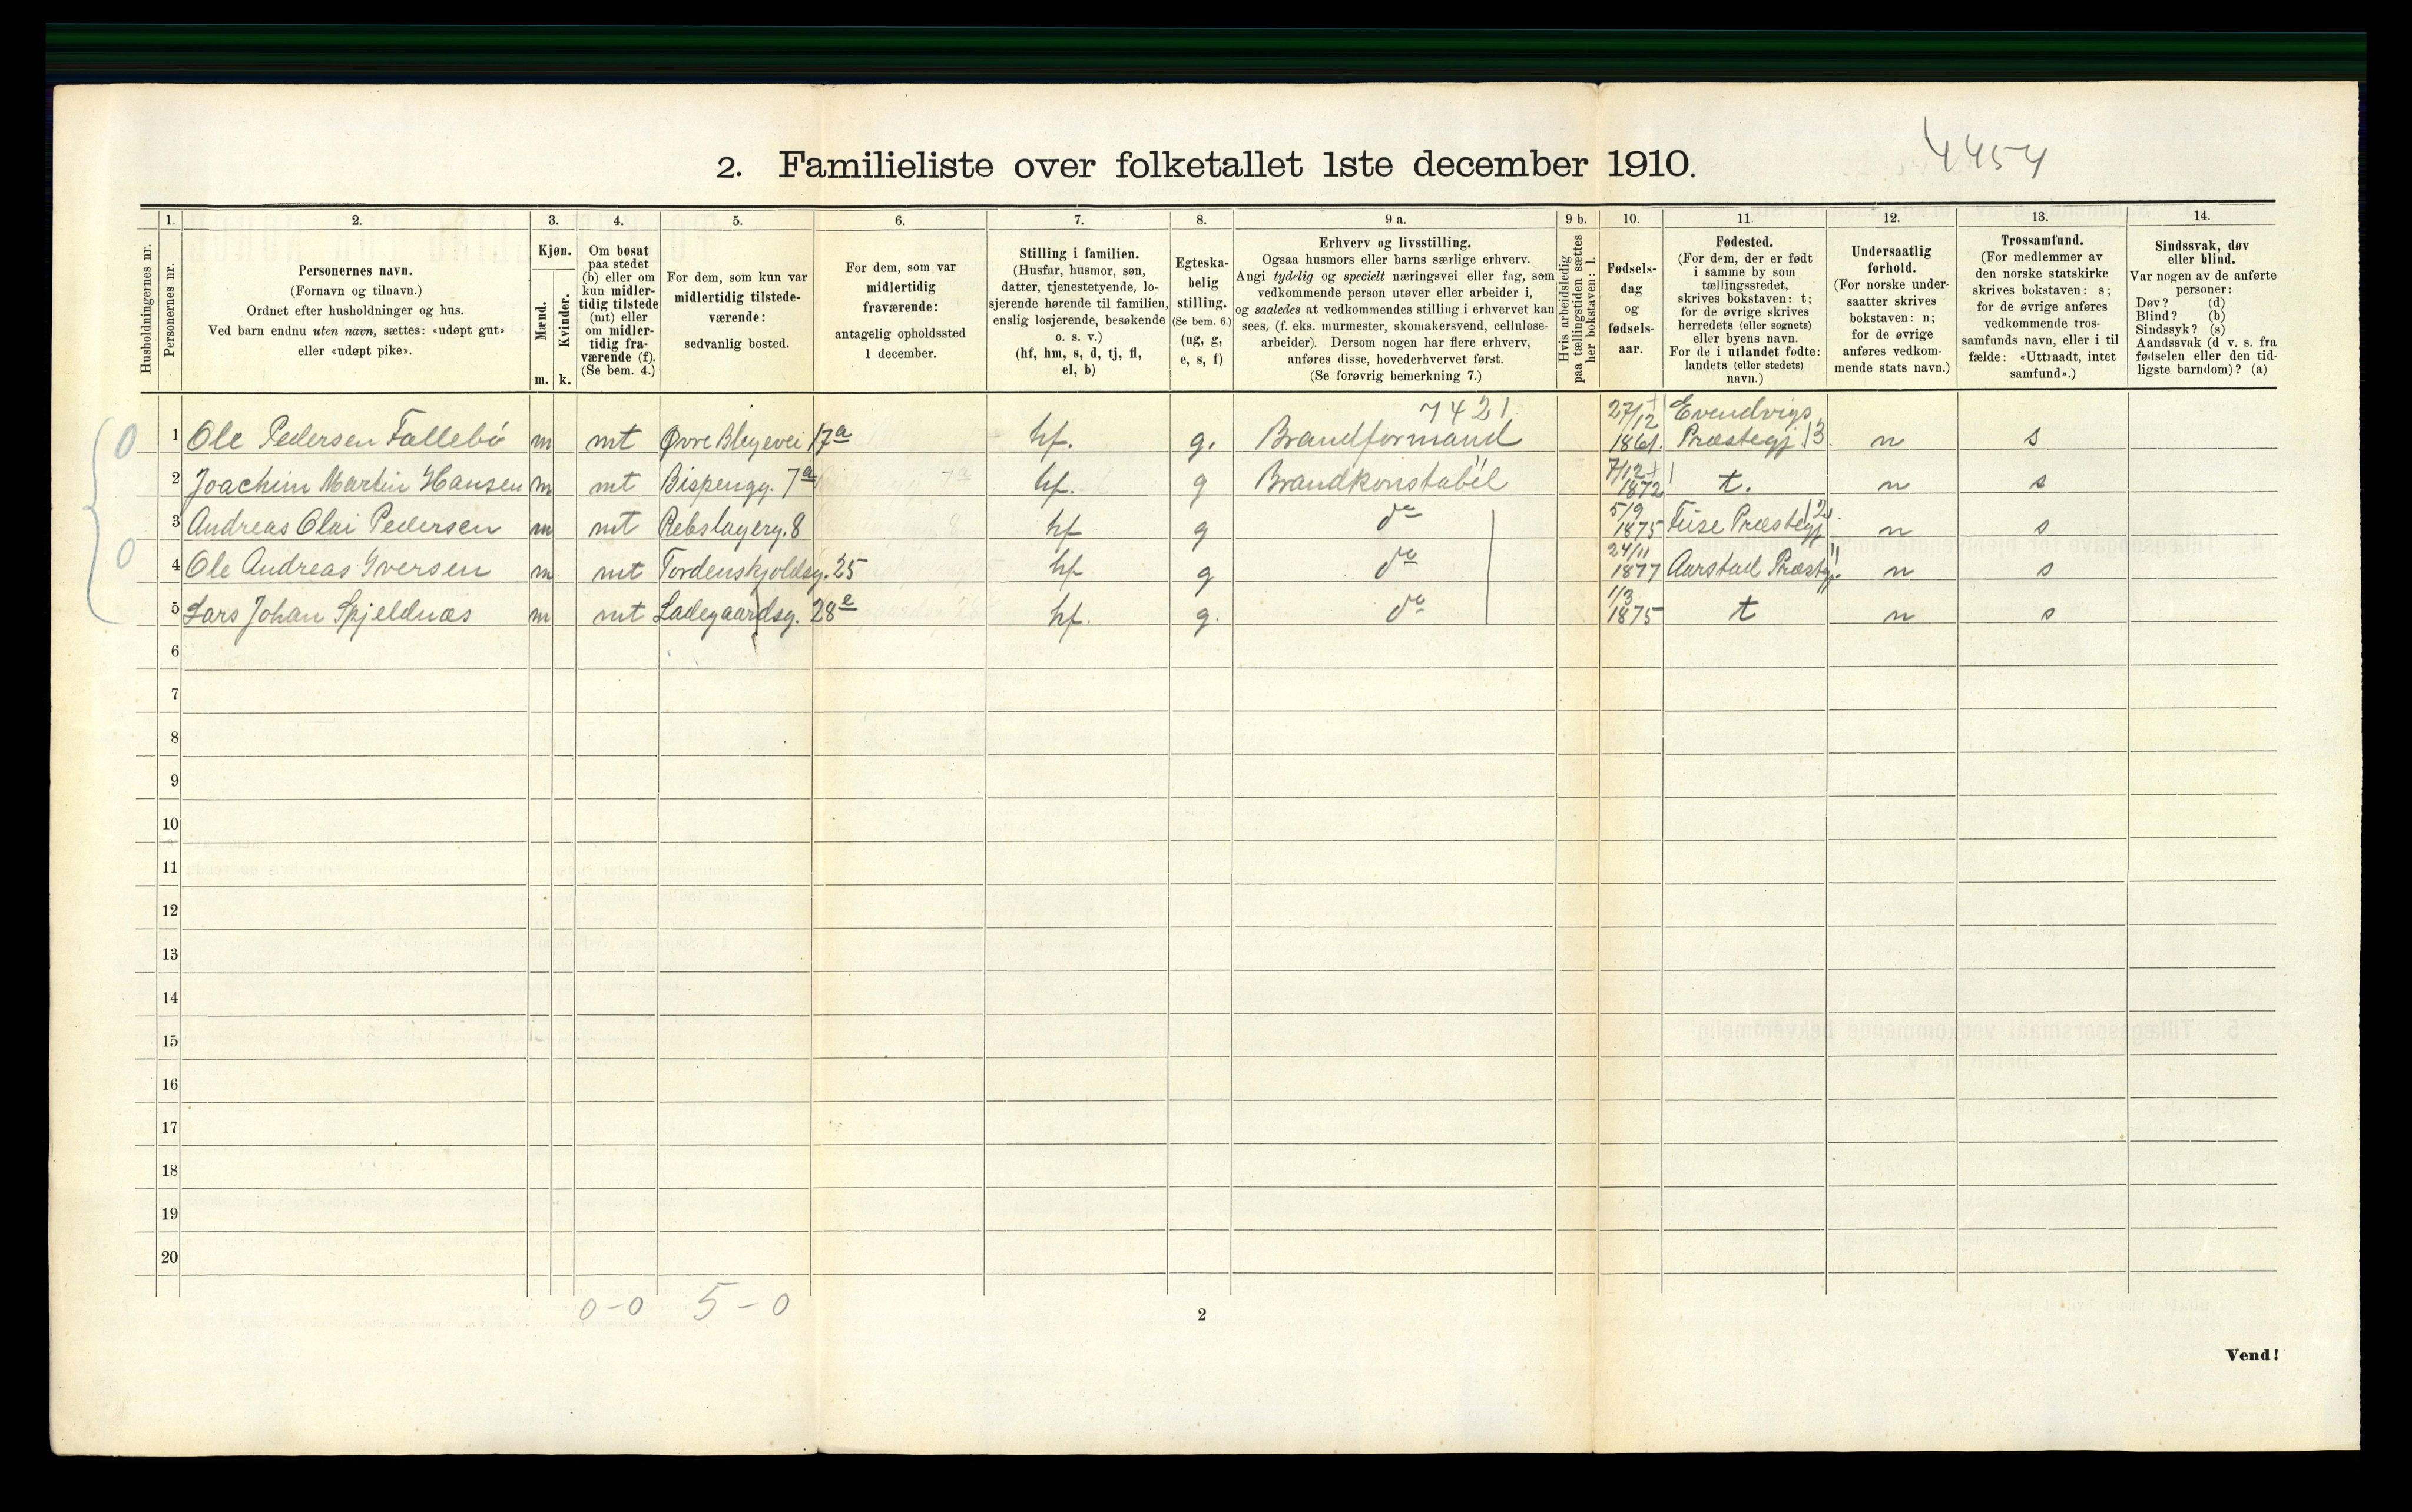 4454
2. Familieliste over folketallet 1ste december 1910.
Husholdningernes nr.
1. Personernes nr.
2. Personernes navn. (Fornavn og tilnavn.) Ordnet efter husholdninger og hus. Ved barn endnu uten navn, sættes: «udøpt gut» eller «udøpt pike».
3. Kjøn. Mænd. m. Kvinder. k.
4. Om bosat paa stedet (b) eller om kun midlertidig tilstede (mt) eller om midlertidig fraværende (f). (Se bem. 4.)
5. For dem, som kun var midlertidig tilstedeværende: sedvanlig bosted.
6. For dem, som var midlertidig fraværende: antagelig opholdssted 1 december.
7. Stilling i familien. (Husfar, husmor, søn, datter, tjenestetyende, losjerende hørende til familien, enslig losjerende, besøkende o. s. v.) (hf, hm, s, d, tj, fl, el, b)
8. Egteskabelig stilling. (Se bem. 6.) (ug, g, e, s, f)
9 a. Erhverv og livsstilling. Ogsaa husmors eller barns særlige erhverv. Angi tydelig og specielt næringsvei eller fag, som vedkommende person utøver eller arbeider i, og saaledes at vedkommendes stilling i erhvervet kan sees, (f. eks. murmester, skomakersvend, cellulosearbeider). Dersom nogen har flere erhverv, anføres disse, hovederhvervet først. (Se forøvrig bemerkning 7.)
9 b. Hvis arbeidsledig paa tællingstiden sættes her bokstaven: l.
10. Fødselsdag og fødselsaar.
11. Fødested. (For dem, der er født i samme by som tællingsstedet, skrives bokstaven: t; for de øvrige skrives herredets (eller sognets) eller byens navn. For de i utlandet fødte: landets (eller stedets) navn.)
12. Undersaatlig forhold. (For norske undersaatter skrives bokstaven: n; for de øvrige anføres vedkommende stats navn.)
13. Trossamfund. (For medlemmer av den norske statskirke skrives bokstaven: s; for de øvrige anføres vedkommende trossamfunds navn, eller i tilfælde: «Uttraadt, intet samfund».)
14. Sindssvak, døv eller blind. Var nogen av de anførte personer: Døv? (d) Blind? (b) Sindssyk? (s) Aandssvak (d. v. s. fra fødselen eller den tidligste barndom)? (a)
7421
0 1 Ole Pedersen Fallebø m mt Øvre Blegevei 17a hf. g. Brandformand 27/12 1861. Evendvigs Præstegj. 13. n s
2 Joachim Martin Hansen m mt Bispengg. 7a hf. g Brandkonstabel 7/12 1872 t. n s
3 Andreas Olai Pedersen m mt Rebslagerg. 8 hf g do 5/9 1875 Fuse Præstegj 12. n s
0 4 Ole Andreas Iversen m mt Tordenskjoldsg. 25 hf g do 24/11 1877 Aarstad Præstgj. n s
5 Lars Johan Skjeldnæs m mt Ladegaardsg. 28e hf. g. do 1/3 1875 t n s
6
7
8
9
10
11
12
13
14
15
16
17
18
19
20
0-0 5-0
2
Vend!